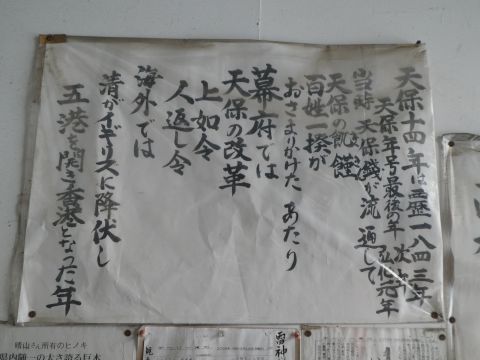 天保十四年は西歴一八四三年
天保年号最後の年 次が弘化元年
当時 天保銭が流通して
天保の飢饉
百姓一揆が
おさまりかけた あたり
幕府では
天保の改革
上知令
人返し令
海外では
清がイギリスに降伏し
五港を開き香港となった年
晴山さん所有のヒノキ
県内随一の太さ誇る巨木
雷神